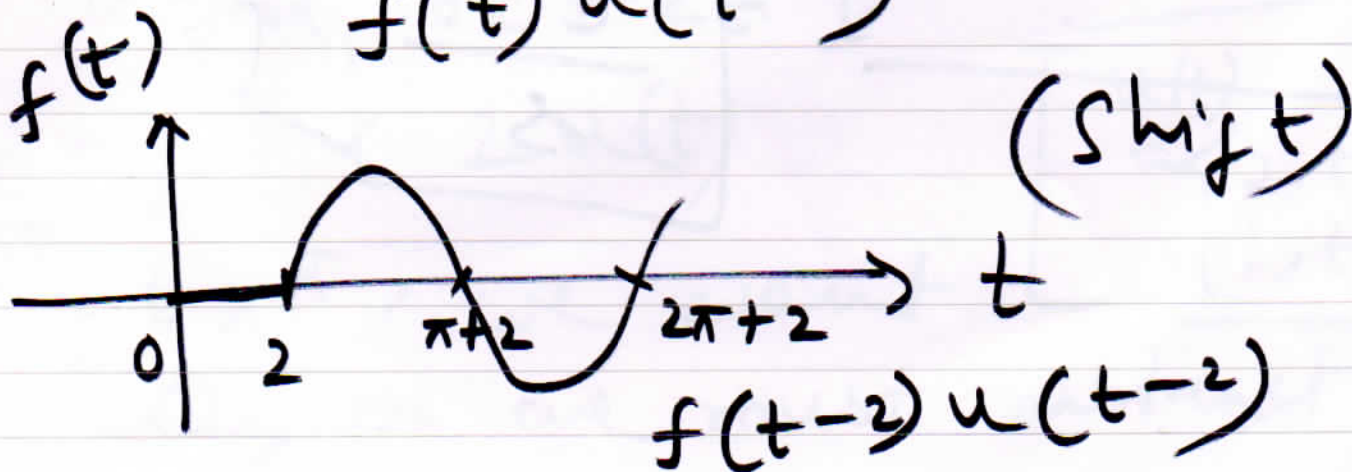 f(t) u(t
f(t)
(Shift)
t
0 2 π+2 2π+2
f(t-2) u(t-2)